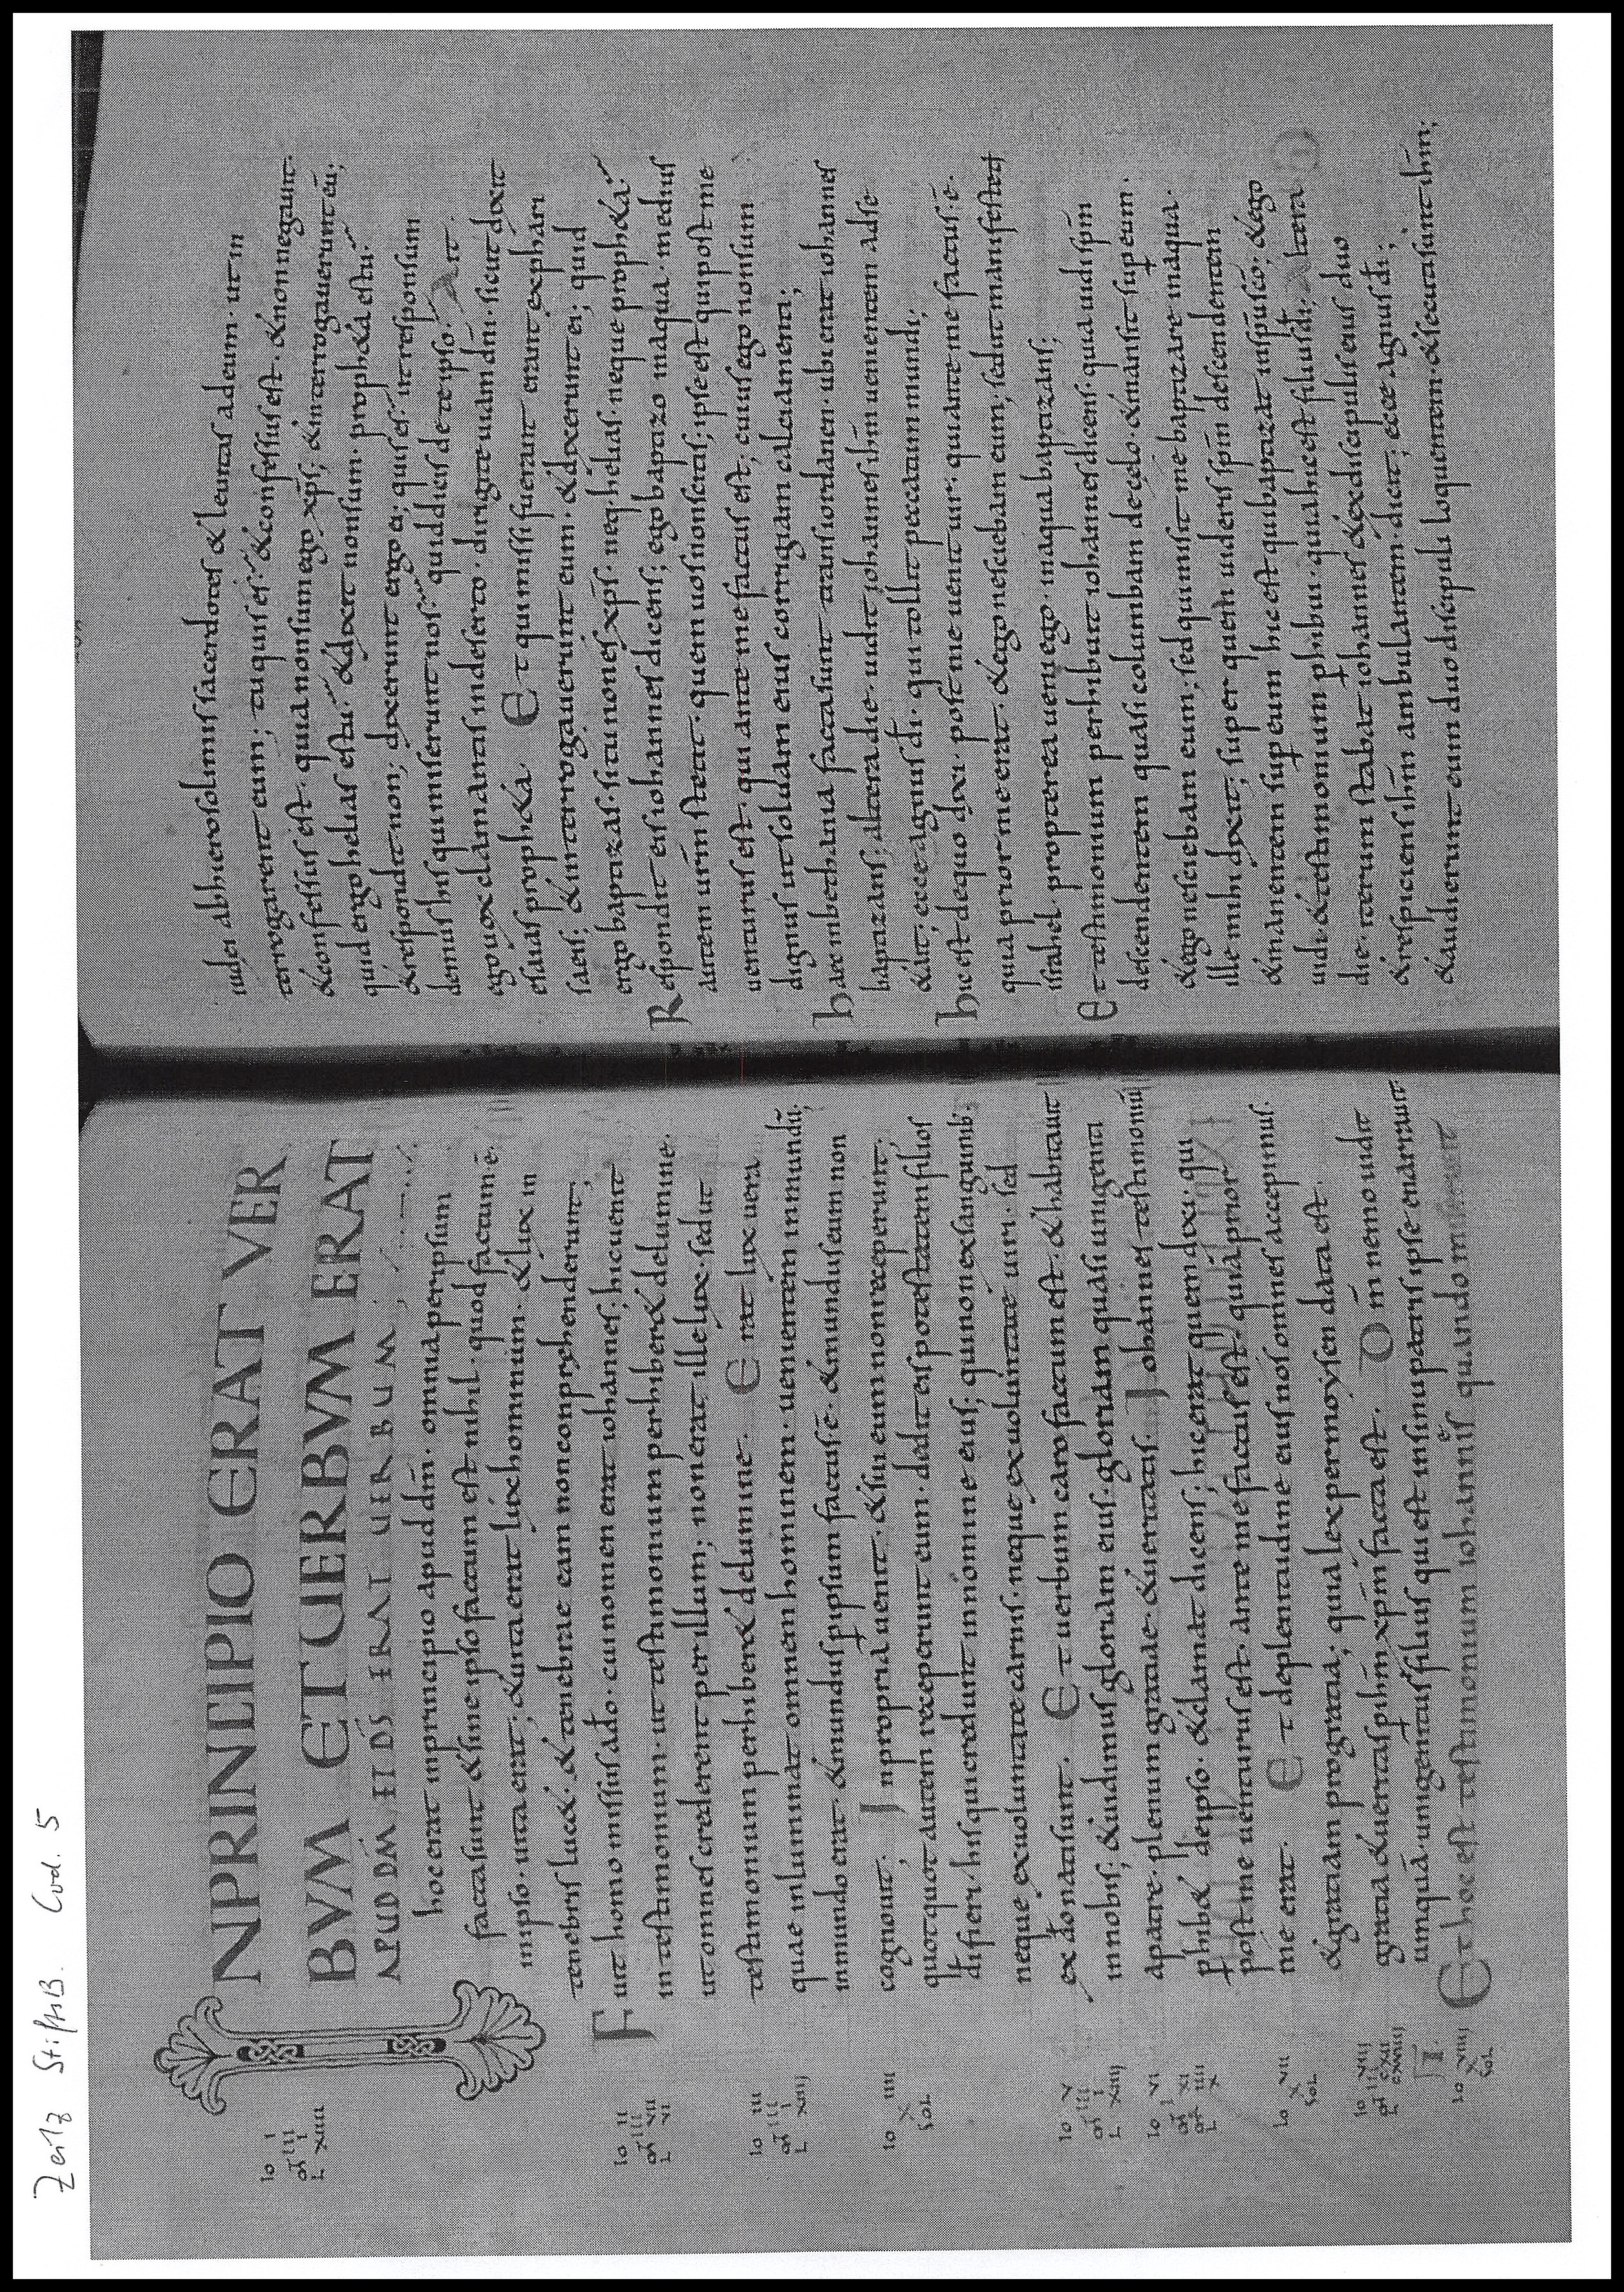 Zeitz StiftsB. Cod. 5
INPRINCIPIO ERAT VER
BVM ET UERBVM ERAT
APUD DM̄ ET DS̄ ERAT UERBUM
hoc erat inprincipio apud dm̄. omnia per ipsum
facta sunt &sine ipso factum est nihil. quod factum ē.
inipso. uita erat; &uita erat lux hominum. &lux in
tenebris luc&. &tenebrae eam non conprehenderunt;
Fuit homo missus ado. cui nomen erat iohannes; hic uenit
in testimonium. ut testimonium perhiber& delumine.
ut omnes crederent per illum; non erat ille lux. sed ut
testimonium perhiber& delumine. Erat lux uera
quae inluminat omnem hominem. uenientem inmundū;
inmundo erat. &mundus p ipsum factus ē. &mundus eum non
cognouit; Inpropria uenit. &sui eum non receperunt;
quotquot autem receperunt eum. dedit eis potestatem filios
di fieri. his qui credunt innomine eius; qui non exsanguinib;
neque exuoluntate carnis. neque exuoluntate uiri. sed
ex do nati sunt. Et uerbum caro factum est. &habitauit
innobis; &uidimus gloriam eius. gloriam quasi unigeniti
apatre. plenum gratiae &ueritatis. Iohannes testimoniū
phib& deipso. &clamat dicens; hic erat quem dixi. qui
post me uenturus est. ante me factus est. quia prior
me erat. Et deplenitudine eius nos omnes accepimus.
&gratiam progratia; quia lex per moysen data est.
gratia &ueritas p ihm xpm facta est. Dm̄ nemo uidit
umquā. unigenitus filius qui est insinu patris ipse enarrauit
Et hoc est testimonium iohannis quando miserunt
Io I
Io II
Io III
Io IIII
X
SOL
Io V
Io VI
Io VII
X
SOL
Io VIII
Io VIIII
X
SOL
iudei abhierosolimis sacerdotes &leuitas adeum. ut in
terrogarent eum; tu quis es. &confessus est. &non negauit.
&confessus est. quia non sum ego xps; &interrogauerunt eū;
quid ergo helias es tu. &dixit non sum. proph&a es tu.
&respondit non; dixerunt ergo ei; quis es. ut responsum
demus his qui miserunt nos. quid dicis de te ipso. Ait.
ego uox clamantis indeserto. dirigite uiam dni. sicut dixit
esaias proph&a. Et qui missi fuerant erant ex phari
saeis; &interrogauerunt eum. &dixerunt ei; quid
ergo baptizas. si tu non es xps. neq; helias. neque proph&a.
Respondit eis iohannes dicens; ego baptizo in aqua. medius
autem urm stetit. quem uos nonscitis; ipse est qui post me
uenturus est. qui ante me factus est; cuius ego non sum
dignus ut soluam eius corrigiam calciamenti;
haec inbethania facta sunt trans iordanen. ubi erat iohannes
baptizans; altera die. uidit iohannes ihm uenientem adse
&ait; ecce agnus di. qui tollit peccatum mundi;
hic est dequo dixi. post me uenit uir. qui ante me factus. ē.
quia prior me erat. &ego nesciebam eum; sed ut manifestetur
israhel. propterea ueni ego. inaqua baptizans;
Et testimonium perhibuit iohannes dicens. quia uidi spm
descendentem quasi columbam decęlo. &mansit sup eum.
&ego nesciebam eum; sed qui misit me baptizare inaqua.
ille mihi dixit; super quem uideris spm descendentem
&manentem sup eum hic est qui baptizat inspu sco; &ego
uidi &testimonium phibui. quia hic est filius di; altera
die. iterum stabat iohannes &exdiscipulis eius duo
&respiciens ihm ambulantem. dicit; ecce agnus di;
&audierunt eum duo discipuli loquentem. &secuti sunt ihm;